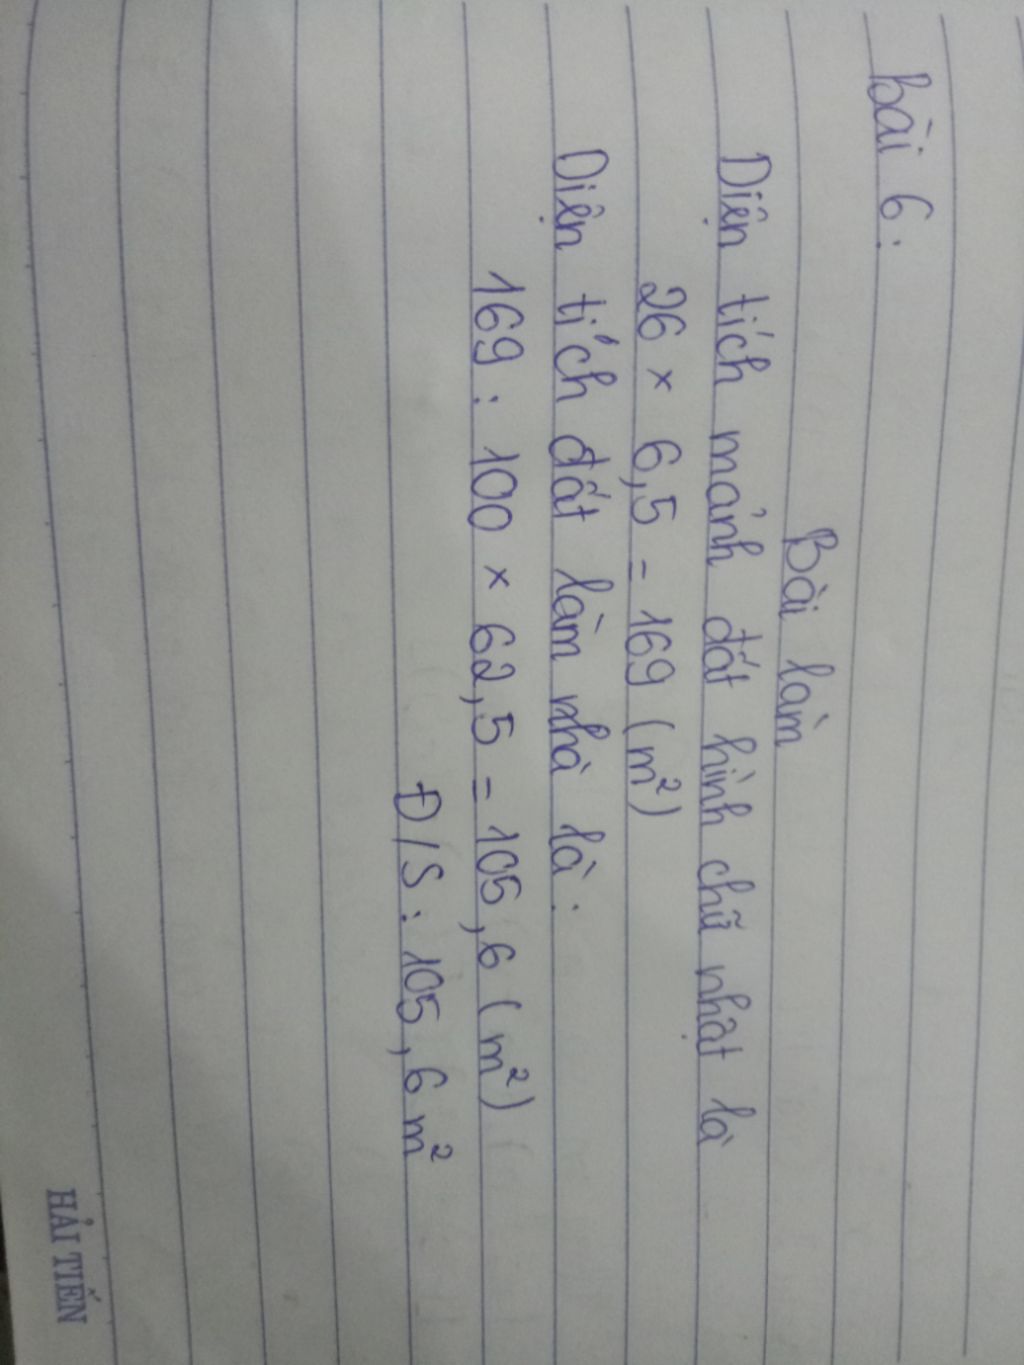 Bài 6:
Bài làm
Diện tích mảnh đất hình chữ nhật là
26 × 6,5 = 169 (m²)
Diện tích đất làm nhà là:
169 : 100 × 62,5 = 105,6 (m²)
Đ/S : 105,6 m²
HẢI TIẾN